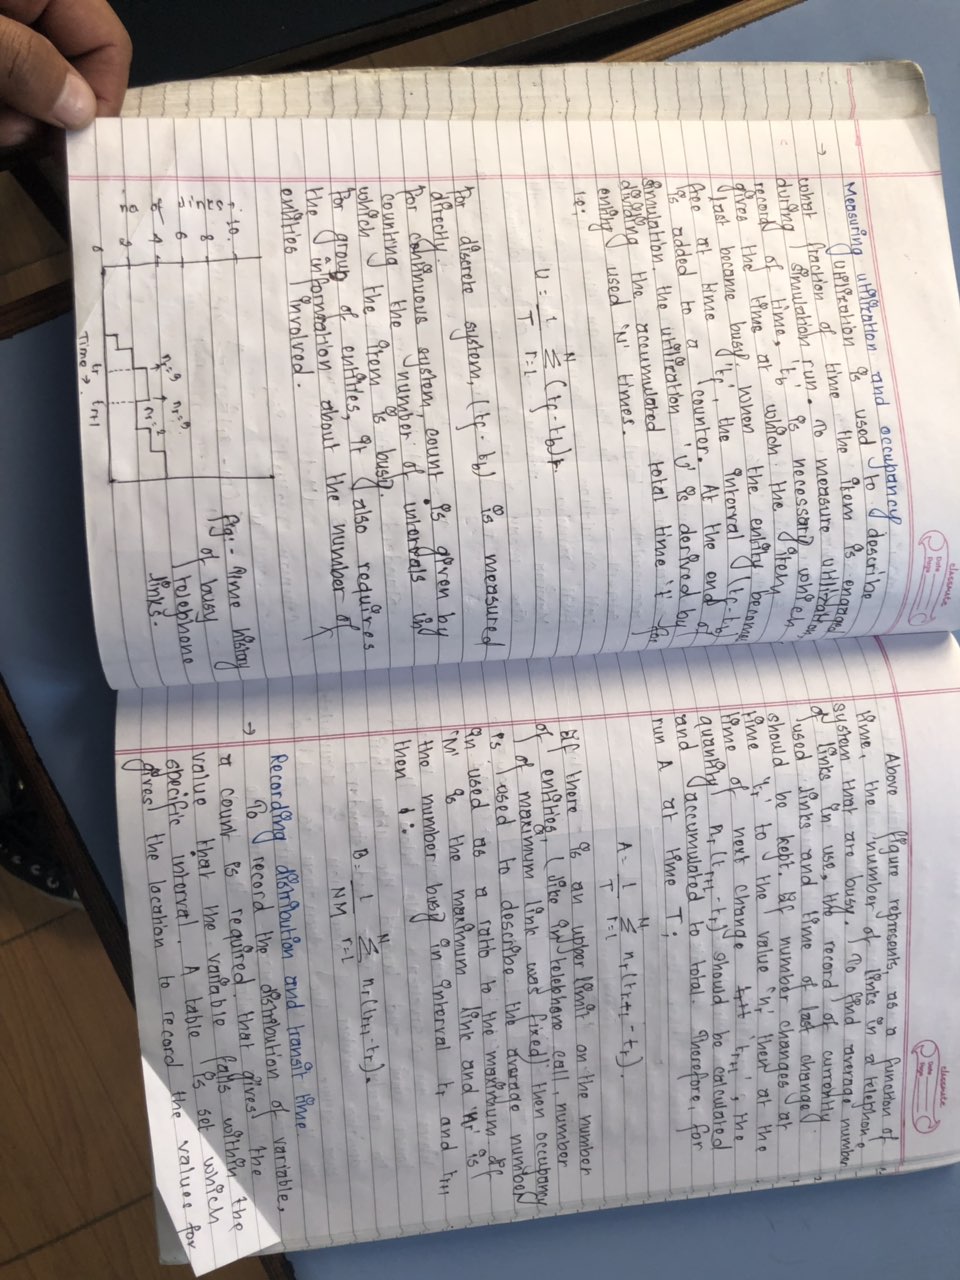 classmate
Date
Page
Measuring utilization and occupancy
→ Utilization is used to describe
what fraction of time the item is engaged
during simulation run. To measure utilization
record of time, tb is necessary when
gives the time at which the item
last became busy, 'tf' when the entity become
free at time tf, the interval (tf - tb)
is added to a counter. At the end of
simulation, the utilization 'U' is derived by
dividing the accumulated total time 'T' for
entity used 'N' times.
i.e;
U = 1/T N∑r=1 (tf - tb)r.
For discrete system, (tf - tb) is measured
directly.
For continuous system, count is given by
counting the number of intervals in
which the item is busy.
For group of entities, it also requires
the information about the number of
entities involved.
10
8
6
4
2
0
no of links
nr=3
nr=5
nr=2
tr
tr+1
Time →
fig:- Time history
of busy
telephone
links.
classmate
Date
Page
Above figure represents, as a function of
time, the number of links in a telephone
system that are busy. To find average number
of links in use, the record of currently
used links and time of last change
should be kept. If number changes at
time 'tr' to the value 'nr' then at the
time of next change tr+1, the
quantity nr(tr+1 - tr) should be calculated
and accumulated to total. Therefore, for
run A at time T;
A = 1/T N∑r=1 nr(tr+1 - tr).
If there is an upper limit on the number
of entities, (like in telephone call, number
of maximum link was fixed) then occupancy
is used to describe the average number
in used as a ratio to the maximum. If
'M' is the maximum link and 'nr' is
the number busy in interval tr and tr+1
then;
B = 1/NM N∑r=1 nr(tr+1 - tr).
Recording distribution and transit time
→ To record the distribution of variable,
a count is required that gives the
value that the variable falls within the
specific interval. A table is set which
gives the location to record the values for